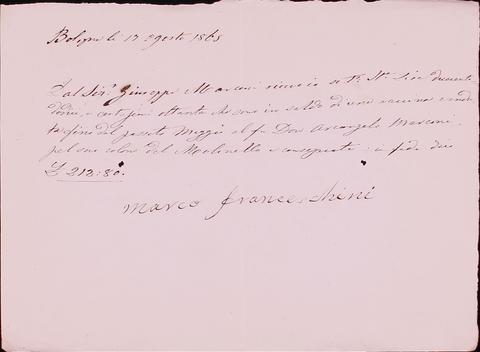 Bologna li 17 Agosto 1865
Dal Sigr. Giuseppe Marconi ricevo io st. It. Lire duecento
dodici, e centesimi ottanta che sono in saldo di una vaccina vendu-
ta fino del passato Maggio al fu Don Arcangelo Marconi
pel suo colono del Molinella e consegnata: in fede dico
£ 212:80.
Marco franceschini